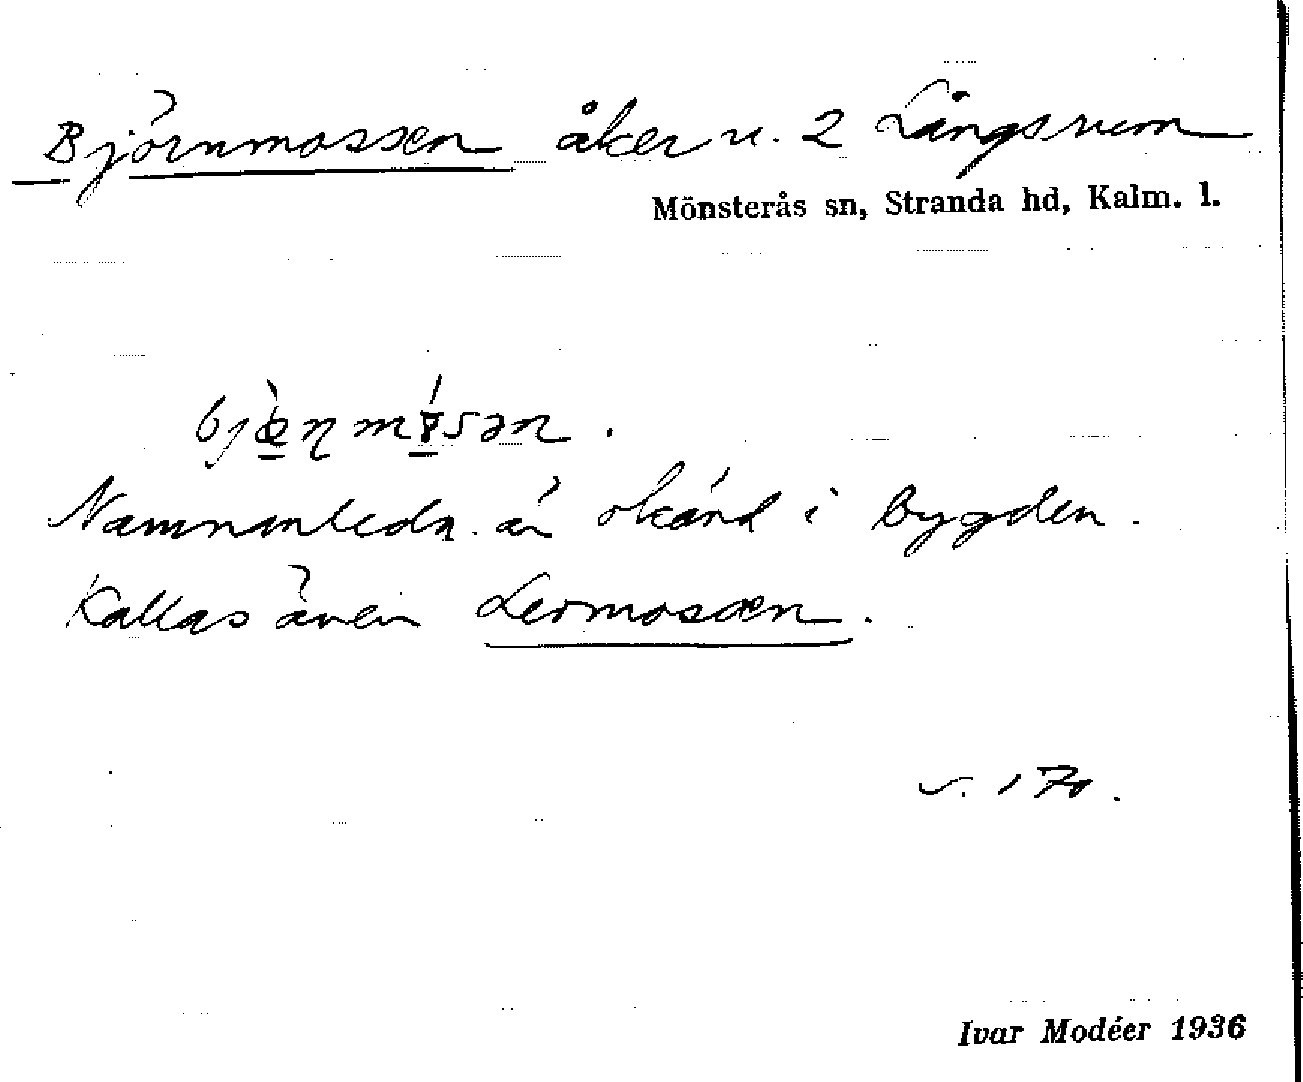 Björnmossen åker u. 2 Långsrum
Mönsterås sn, Stranda hd, Kalm. l.
Namnanledn. är okänd i bygden.
Kallas även Lermossen.
s. 170.
Ivar Modéer 1936